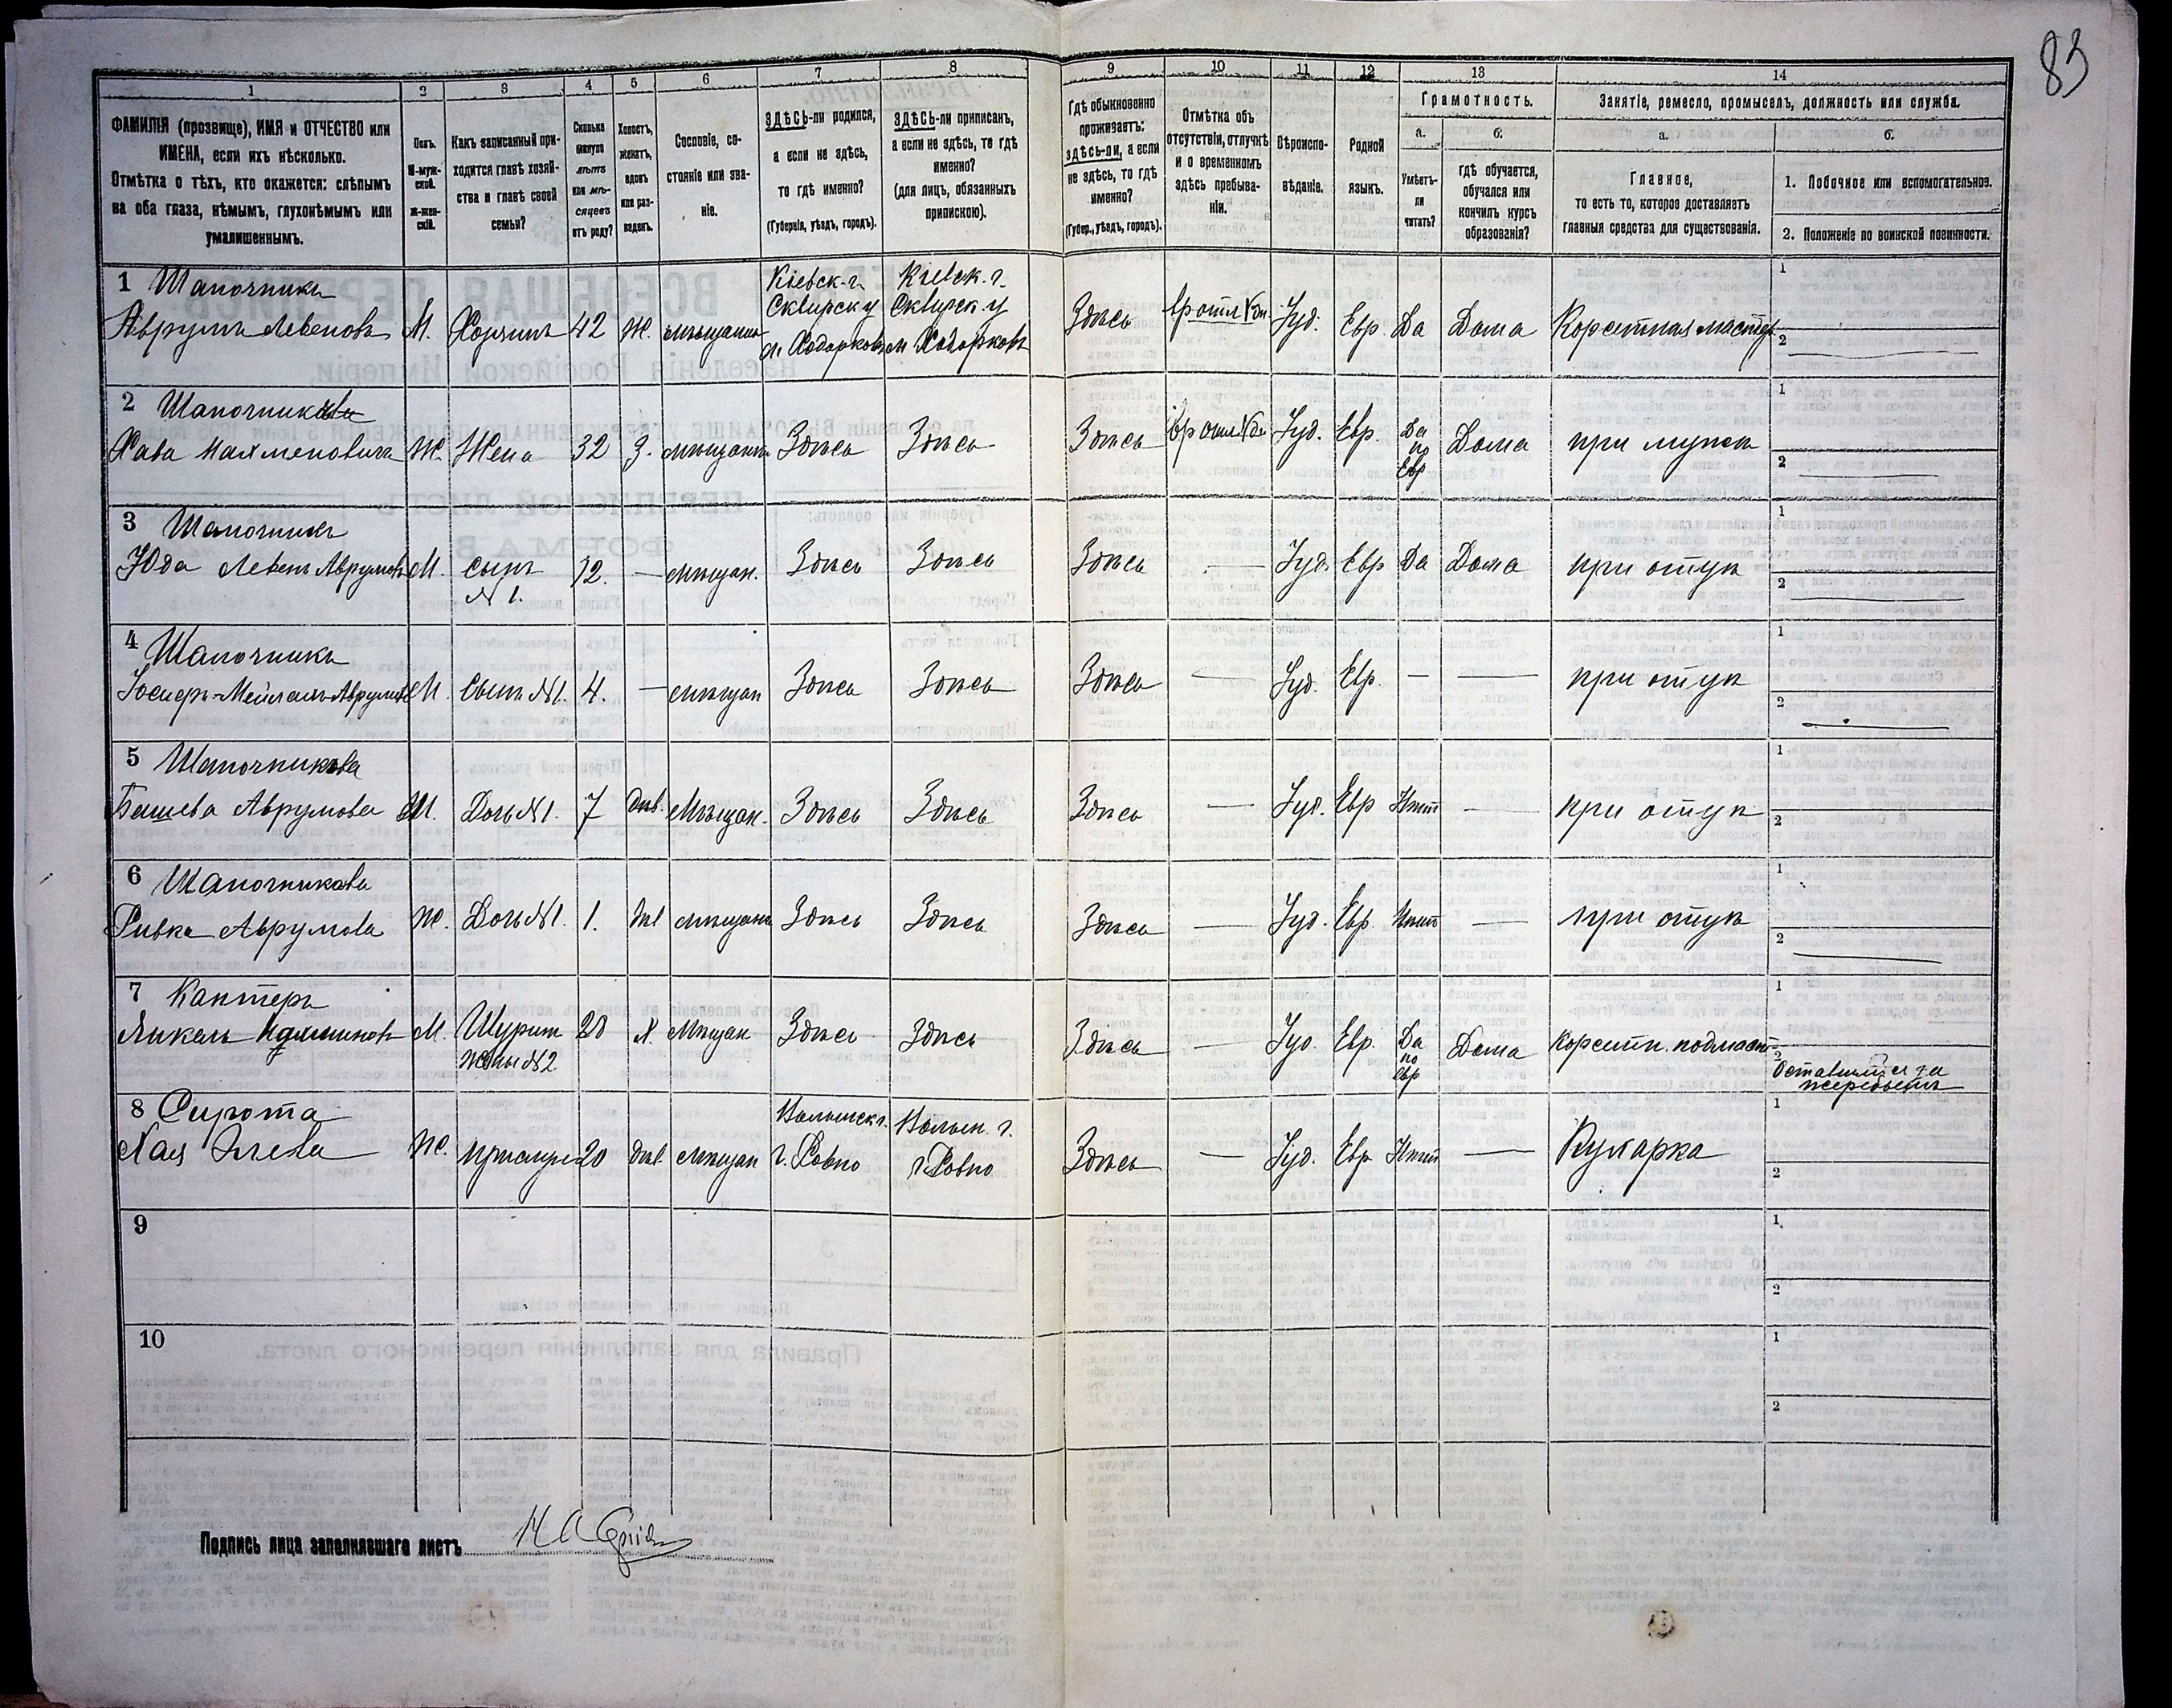 83
1 2 3 4 5 6 7 8 9 10 11 12 13 14
ФАМИЛІЯ (прозвище), ИМЯ и ОТЧЕСТВО или
ИМЕНА, если ихъ нѣсколько.
Отмѣтка о тѣхъ, кто окажется: слѣпымъ
на оба глаза, нѣмымъ, глухонѣмымъ или
умалишеннымъ.
Полъ.
М-муж-
ской.
ж-жен-
скій.
Какъ записанный при-
ходится главѣ хозяй-
ства и главѣ своей
семьи?
Сколько
минуло
лѣтъ
или мѣ-
сяцевъ
отъ роду?
Холостъ,
женатъ,
вдовъ
или раз-
веденъ.
Сословіе, со-
стояніе или зва-
ніе.
ЗДѢСЬ-ли родился,
а если не здѣсь,
то гдѣ именно?
(Губернія, уѣздъ, городъ).
ЗДѢСЬ-ли приписанъ,
а если не здѣсь, то гдѣ
именно?
(для лицъ, обязанныхъ
припискою).
Гдѣ обыкновенно
проживаетъ:
здѣсь-ли, а если
не здѣсь, то гдѣ
именно?
(Губер., уѣздъ, городъ).
Отмѣтка объ
отсутствіи, отлучкѣ
и о временномъ
здѣсь пребыва-
ніи.
Вѣроиспо-
вѣданіе.
Родной
языкъ.
Грамотность.
а. б.
Умѣетъ-
ли
читать?
гдѣ обучается,
обучался или
кончилъ курсъ
образованія?
Занятіе, ремесло, промыселъ, должность или служба.
а. б.
Главное,
то есть то, которое доставляетъ
главныя средства для существованія.
1. Побочное или вспомогательное.
2. Положеніе по воинской повинности.
1 Шапочникъ Кіевск. г. Кіевск. г. 1
Сквирск у Сквирск у
Аврумъ Левеновъ М. Хозяинъ 42 Ж. мѣщанин м. Ходорковъ м Ходорковъ Здѣсь Іуд. Евр. Да Дома Корсетная мастер 2
2 Шапочникова 1
Хава Ж. Жена 32 З. мѣщанка Здѣсь Здѣсь Здѣсь Іуд. Евр. Да по Евр Дома при мужѣ 2
3 Шапочникъ 1
Юда Левенъ Аврумовъ М. сынъ 12. — мѣщан. Здѣсь Здѣсь Здѣсь — Іуд. Евр Да Дома при отцѣ 2
№ 1.
4 Шапочникъ 1
Аврумовъ М. сынъ №1. 4. — мѣщан Здѣсь Здѣсь Здѣсь — Іуд. Евр. — — при отцѣ 2
5 Шапочникова 1
Башева Аврумова Дочь №1. 7 дѣв. мѣщан. Здѣсь Здѣсь Здѣсь — Іуд. Евр Нѣтъ — при отцѣ 2
6 Шапочникова 1
Ривка Аврумова Ж. Дочь №1. 1. дѣв мѣщан Здѣсь Здѣсь Здѣсь — Іуд. Евр. Нѣтъ — при отцѣ 2
7 Кантеръ 1
Янкель М. Шурин 20 Х. Мѣщан Здѣсь Здѣсь Здѣсь — Іуд. Евр. Да по Евр Дома Корсетн. подмаст 2
жены №2. жеребьемъ
8 Сирота Волынск г. Волын. г. 1
Хая Ж. прислуга 20 дѣв. мѣщан г. Ровно г. Ровно Здѣсь — Іуд. Евр Нѣтъ — Кухарка 2
9 1
2
10 1
2
Подпись лица заполнявшаго листъ